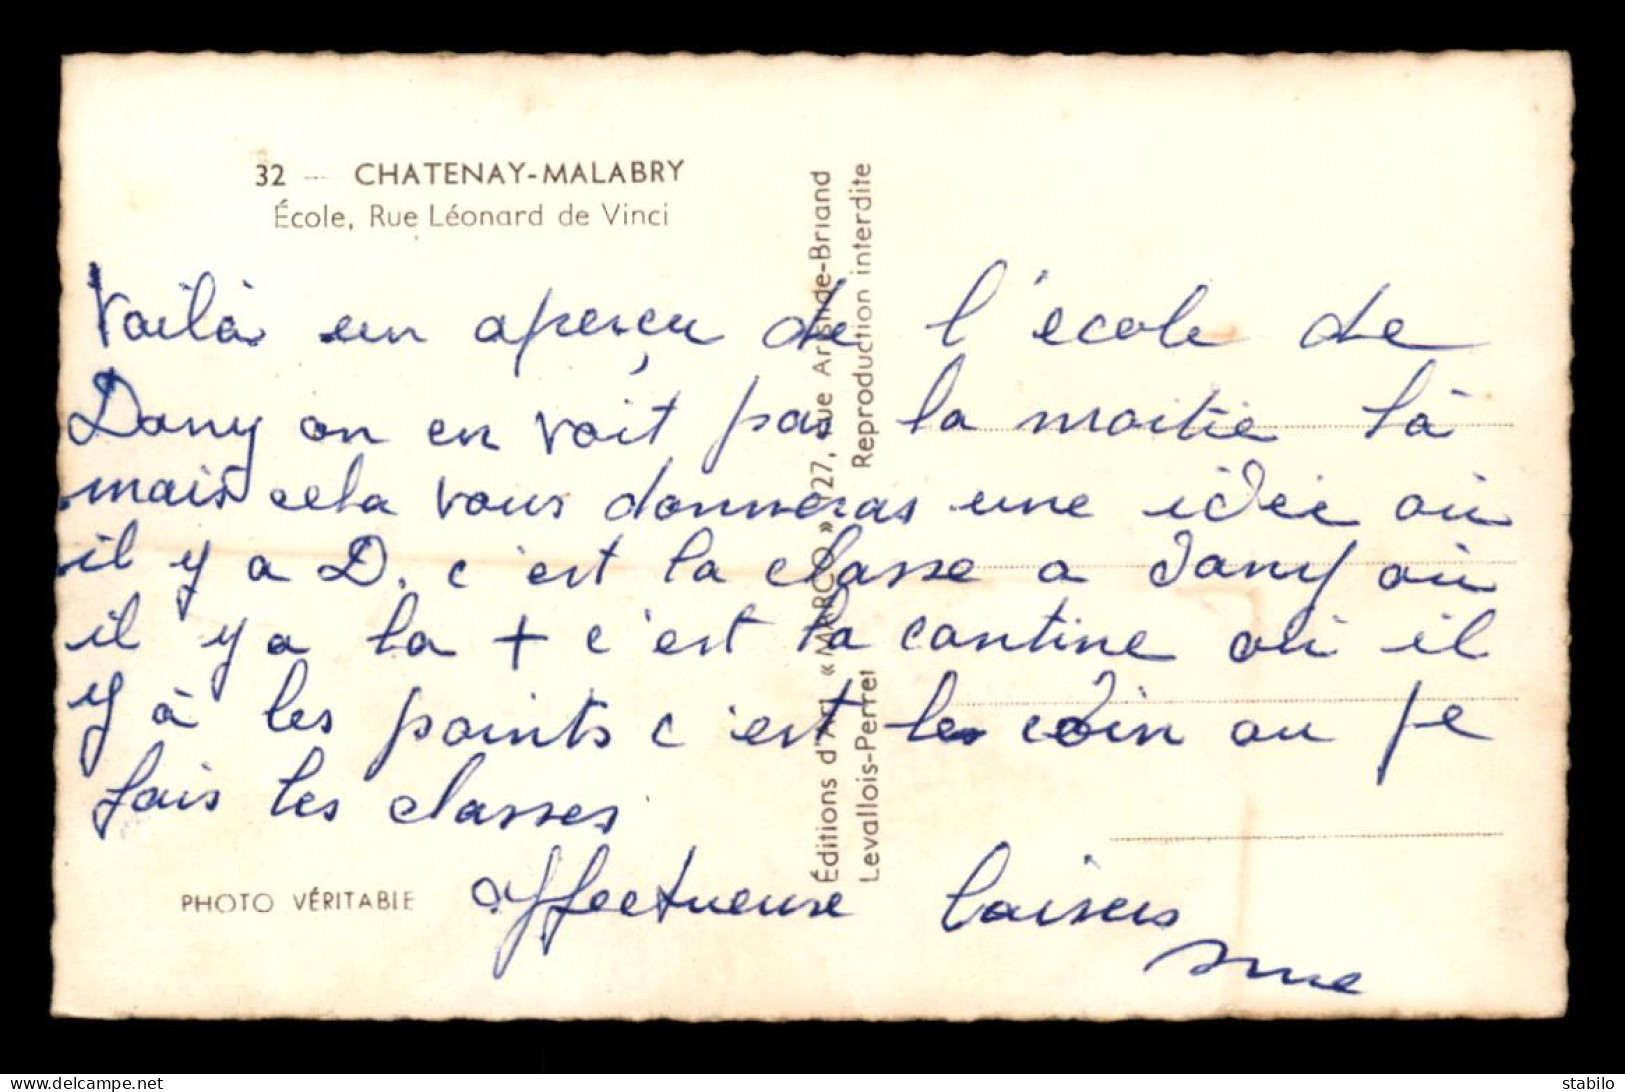 32 — CHATENAY-MALABRY
École, Rue Léonard de Vinci
Voilà un aperçu de l'école de
Dany on en voit pas la moitié là
mais cela vous donneras une idée où
il y a D. c'est la classe a Dany où
il y a la + c'est la cantine où il
y à les points c'est le coin ou je
fais les classes
affectueuse baisers
PHOTO VÉRITABLE
Éditions d'Art « MARCO » 27, rue Aristide-Briand
Levallois-Perret Reproduction interdite
stabilo